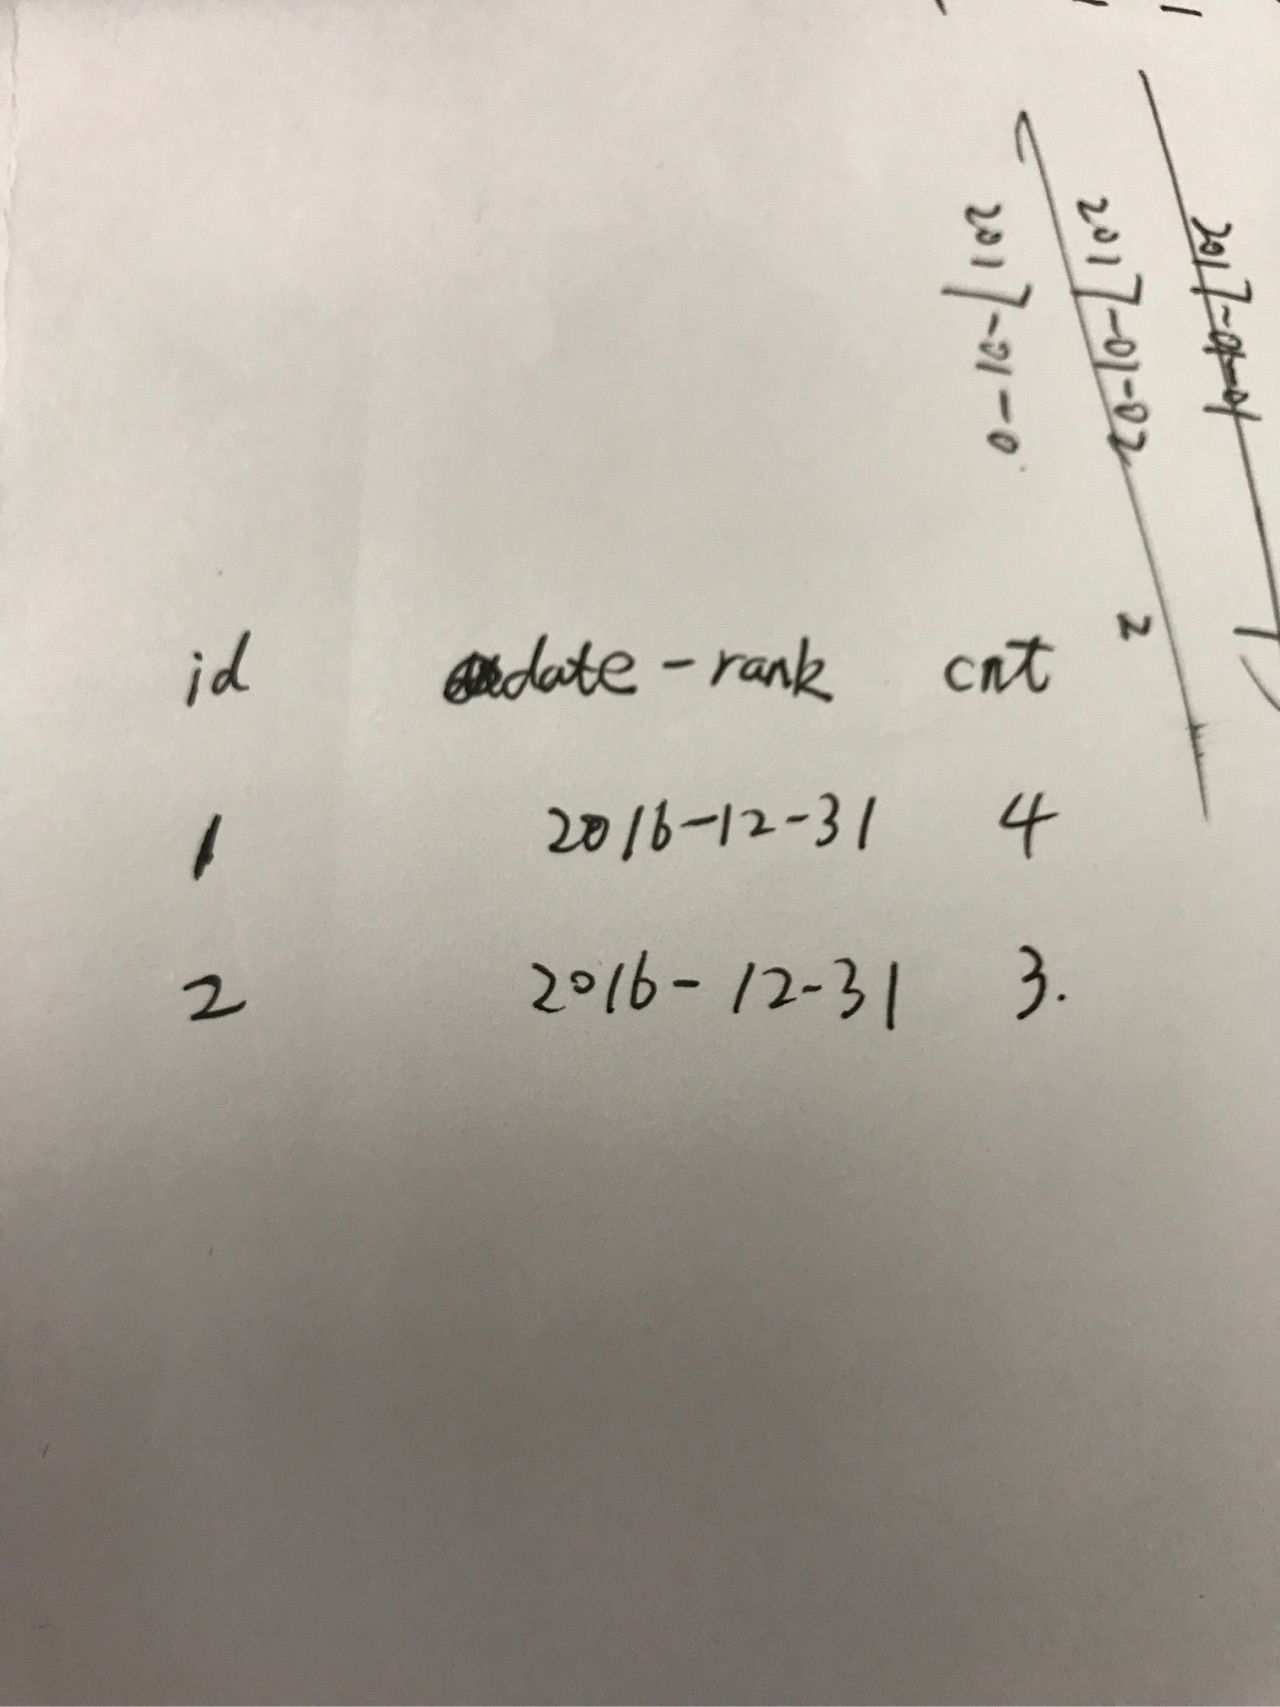 id date-rank cnt
1 2016-12-31 4
2 2016-12-31 3.
2017-01-0
2017-01-02 2